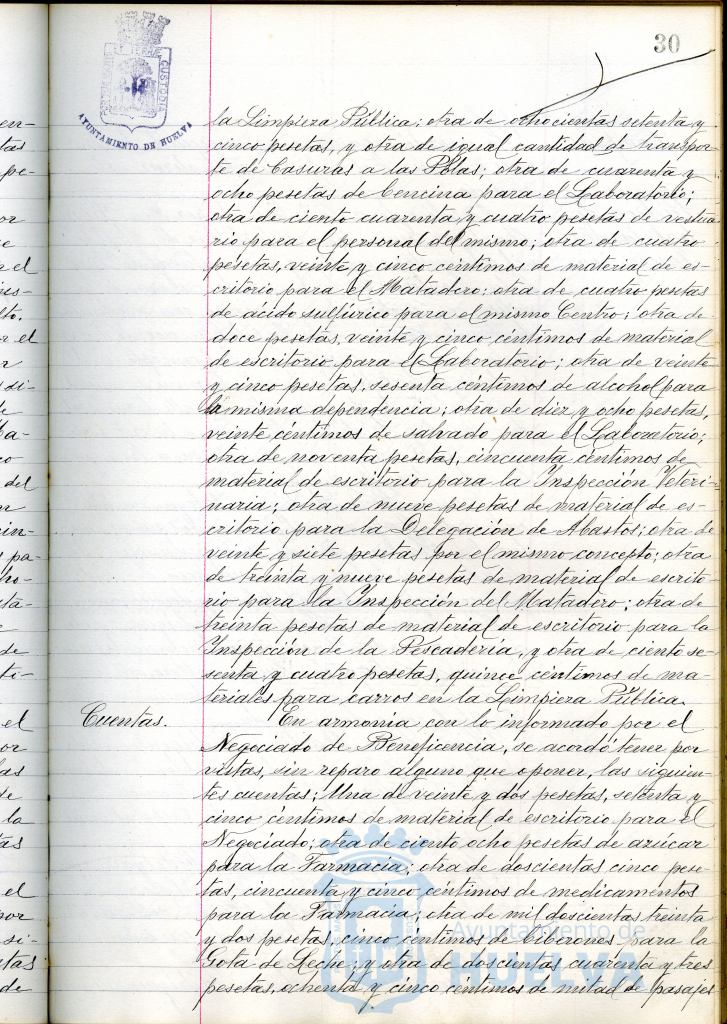 30
AYUNTAMIENTO DE HUELVA
la Limpieza Pública; otra de ochocientas setenta y
cinco pesetas, y otra de igual cantidad de transpor-
te de basuras a las Pilas; otra de cuarenta y
ocho pesetas de bencina para el Laboratorio;
otra de ciento cuarenta y cuatro pesetas de vestua-
rio para el personal del mismo; otra de cuatro
pesetas, veinte y cinco céntimos de material de es-
critorio para el Matadero; otra de cuatro pesetas
de ácido sulfúrico para el mismo Centro; otra de
doce pesetas, veinte y cinco céntimos de material
de escritorio para el Laboratorio; otra de veinte
y cinco pesetas, sesenta céntimos de alcohol para
la misma dependencia; otra de diez y ocho pesetas,
veinte céntimos de salvado para el Laboratorio;
otra de noventa pesetas, cincuenta céntimos de
material de escritorio para la Inspección Veteri-
naria; otra de nueve pesetas de material de es-
critorio para la Delegación de Abastos; otra de
veinte y siete pesetas por el mismo concepto; otra
de treinta y nueve pesetas de material de escrito-
rio para la Inspección del Matadero; otra de
treinta pesetas de material de escritorio para la
Inspección de la Pescadería, y otra de ciento se-
senta y cuatro pesetas, quince céntimos de ma-
teriales para carros en la Limpieza Pública.
Cuentas. En armonía con lo informado por el
Negociado de Beneficencia, se acordó tener por
vistas, sin reparo alguno que oponer, las siguien-
tes cuentas; Una de veinte y dos pesetas, setenta y
cinco céntimos de material de escritorio para el
Negociado; otra de ciento ocho pesetas de azúcar
para la Farmacia; otra de doscientas cinco pese-
tas, cincuenta y cinco céntimos de medicamentos
para la Farmacia; otra de mil doscientas treinta
y dos pesetas, cinco céntimos de biberones para la
Gota de Leche; y otra de doscientas cuarenta y tres
pesetas, ochenta y cinco céntimos de mitad de pasajes
Ayuntamiento de
HUELVA